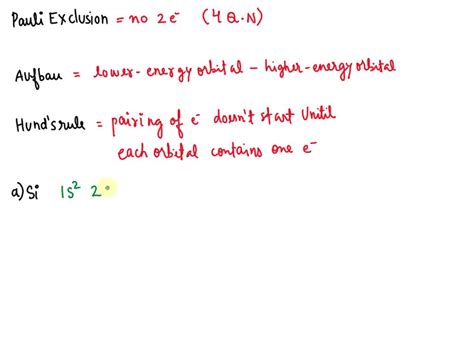 Pauli Exclusion = no 2e⁻ (4 Q.N)
Aufbau = lower-energy orbital – higher-energy orbital
Hund's rule = pairing of e⁻ doesn't start Unitil
each orbital contains one e⁻
a) Si 1s² 2